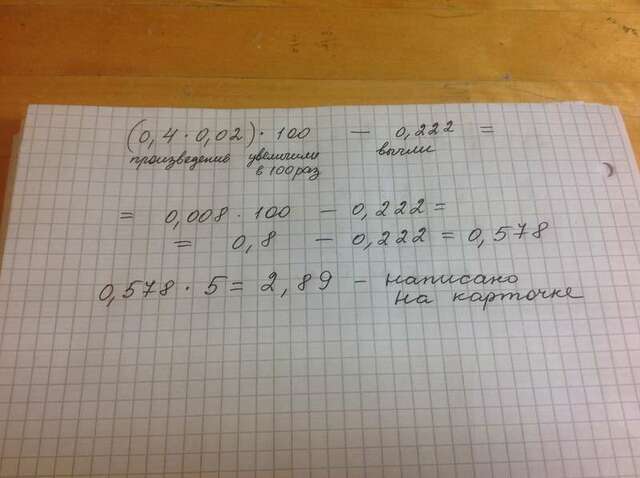 (0,4 · 0,02) · 100 - 0,222 =
произведение увеличили вычли
в 100 раз
= 0,008 · 100 - 0,222 =
= 0,8 - 0,222 = 0,578
0,578 · 5 = 2,89 - написано
на карточке